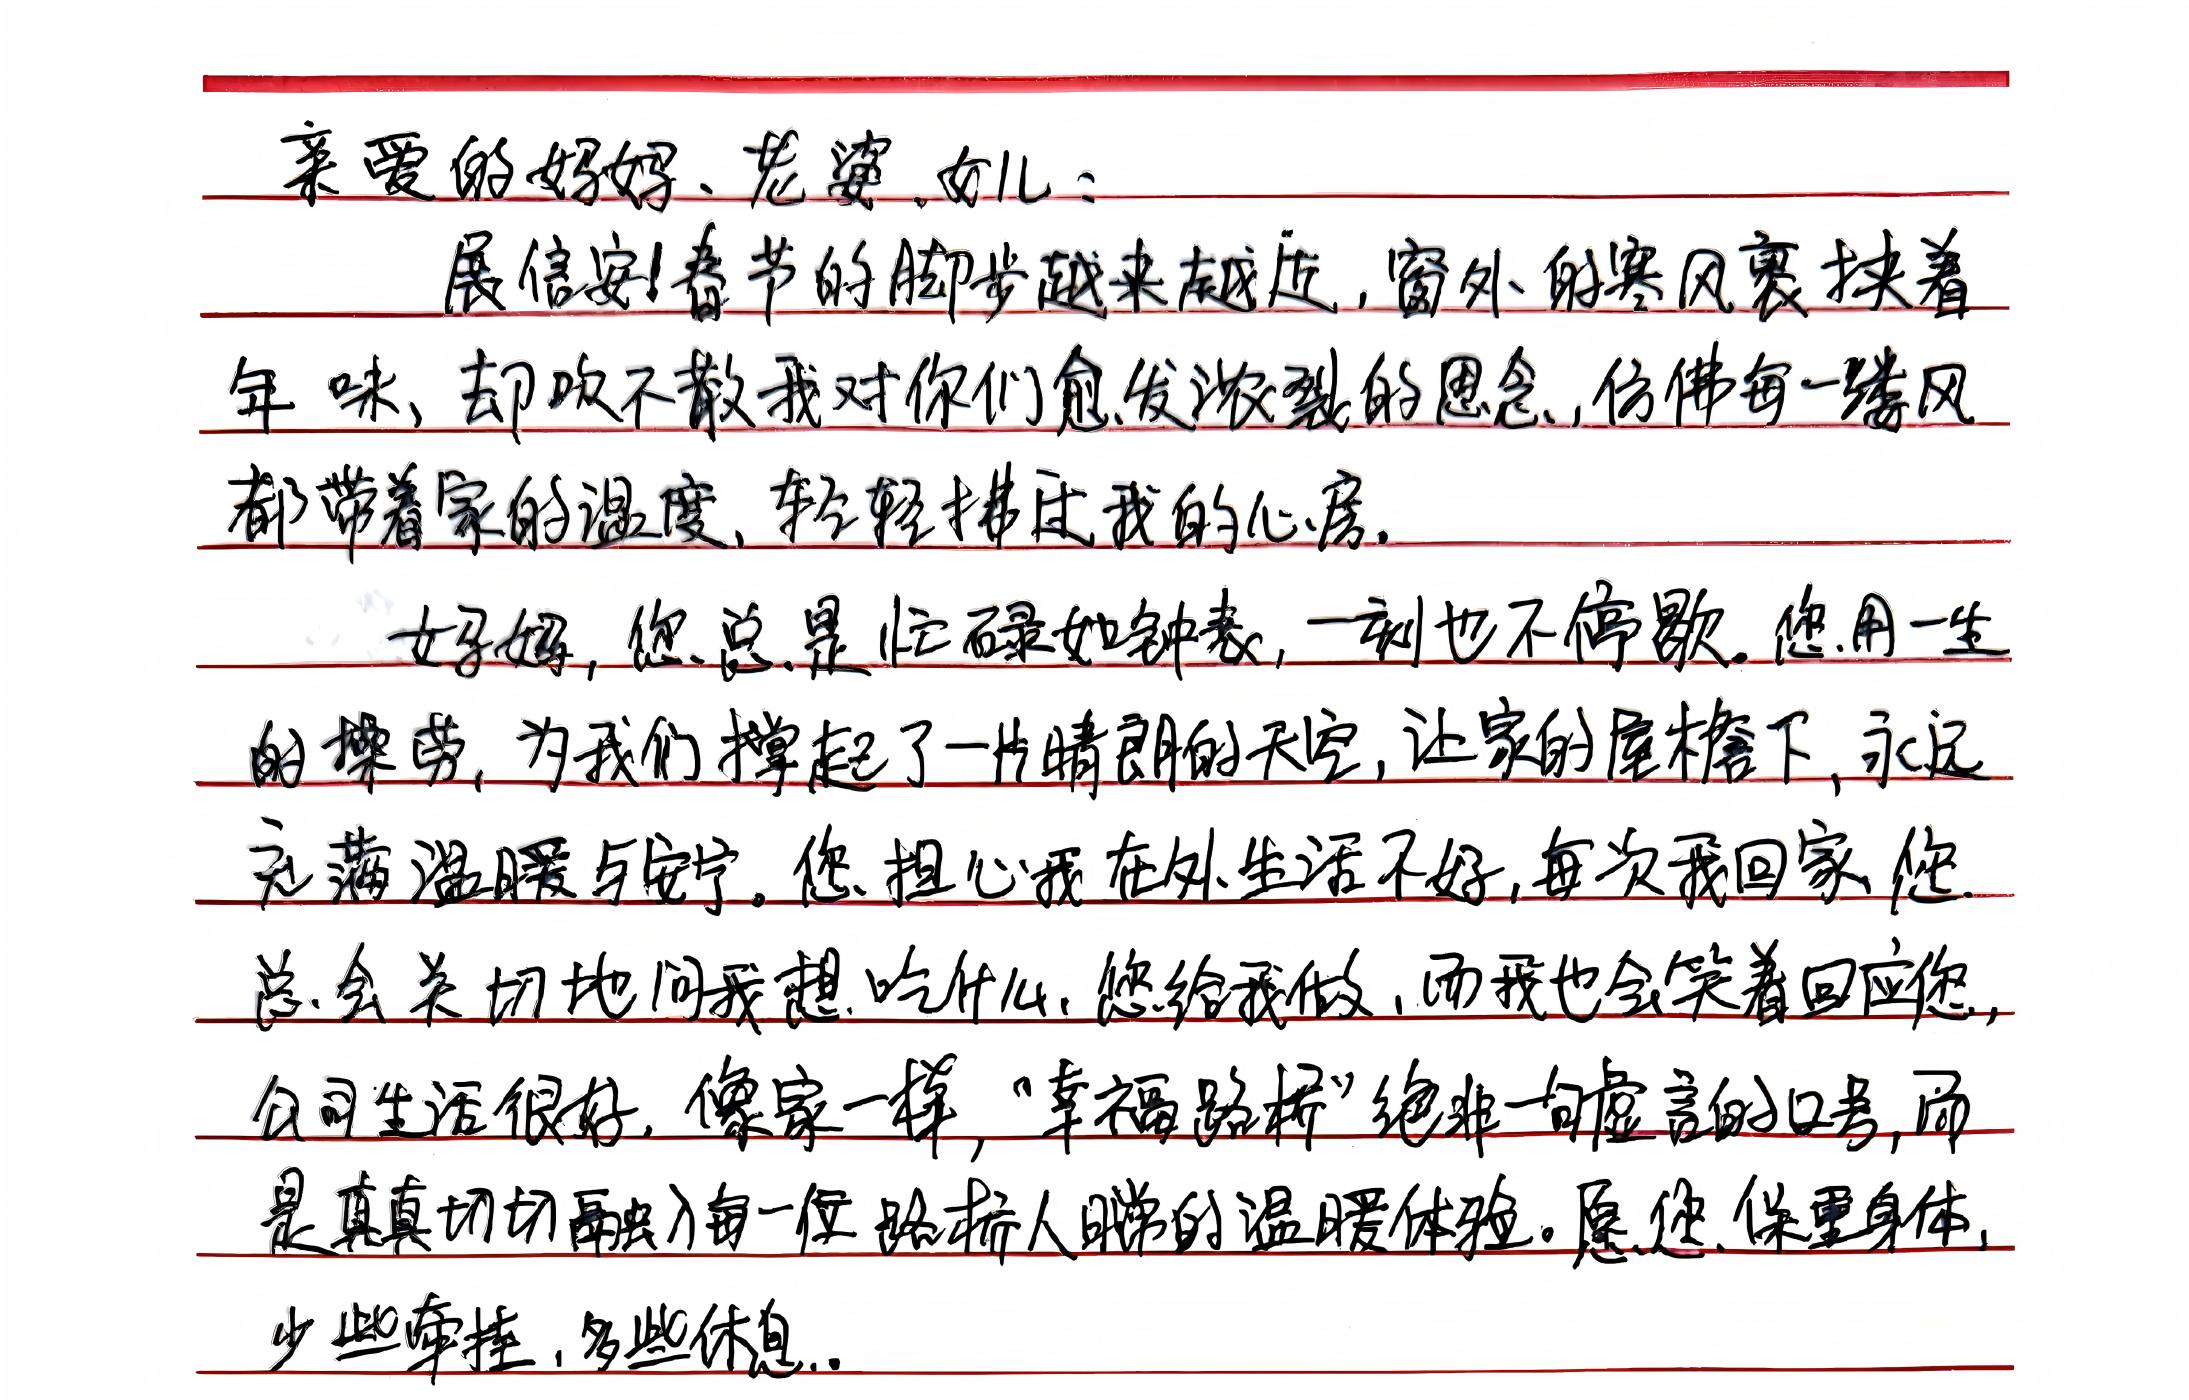 亲爱的妈妈、老婆、女儿：
展信安！春节的脚步越来越近，窗外的寒风裹挟着
年味，却吹不散我对你们愈发浓烈的思念，仿佛每一缕风
都带着家的温度，轻轻拂过我的心房。
妈妈，您总是忙碌如钟表，一刻也不停歇。您用一生
的操劳，为我们撑起了一片晴朗的天空，让家的屋檐下，永远
充满温暖与安宁。您担心我在外生活不好，每次我回家，您
总会关切地问我想吃什么，您给我做，而我也会笑着回应您，
公司生活很好，像家一样，“幸福路桥”绝非一句虚言的口号，而
是真真切切融入每一位路桥人日常的温暖体验。愿您保重身体，
少些牵挂，多些休息。